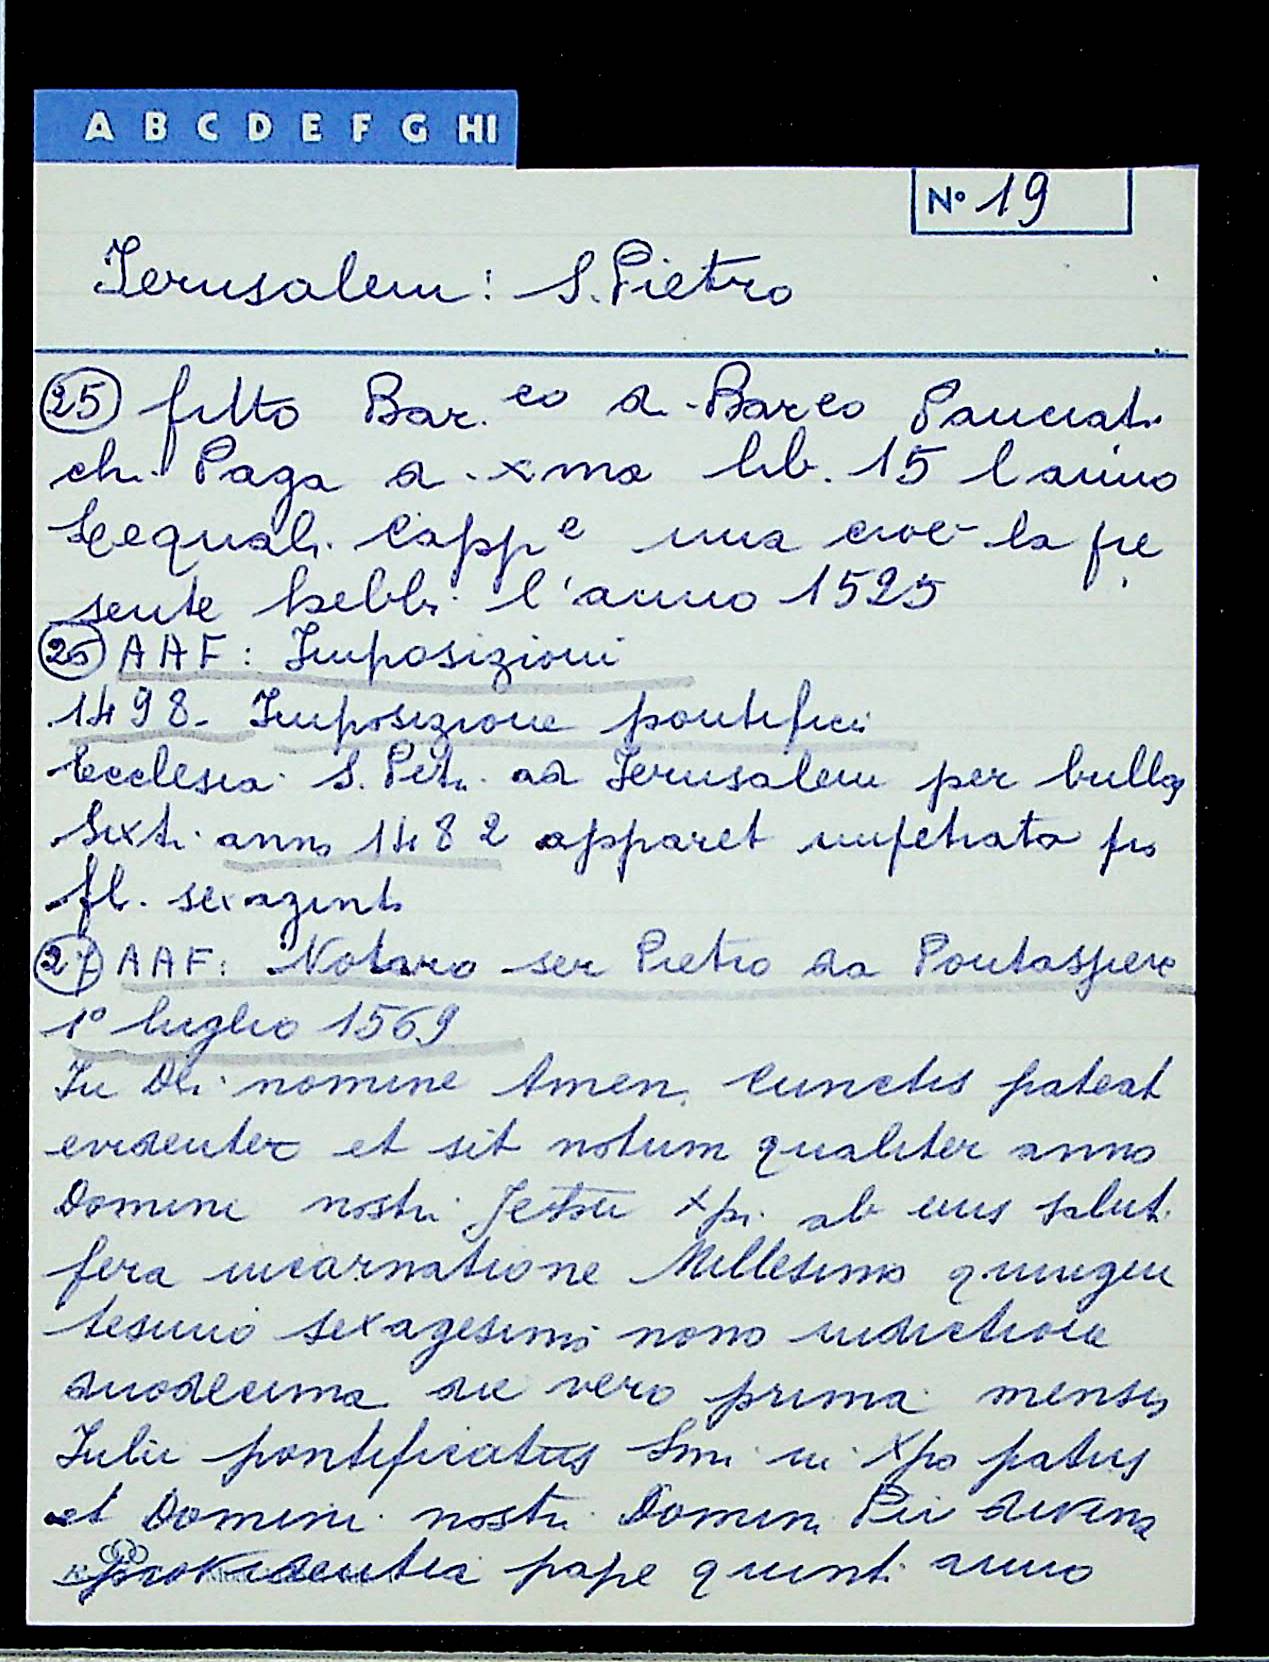 A B C D E F G HI
N° 19
Ierusalem: S. Pietro
25 fitto Bar.co di Barco Panciati
chi Paga di xmo lib. 15 l'anno
 cappe una croce la pre
sente hebbi l'anno 1525
26 AAF: Imposizioni
1498- Imposizione pontifici
Ecclesia S. Petri ad Ierusalem per bulla
Sixti anni 1482 apparet impetrata pro
fl. sexaginti
27 AAF: Notaro ser Pietro da Pontassieve
1° luglio 1569
In Dei nomine Amen. Cunctis pateat
evidenter et sit notum qualiter anno
Domini nostri Jesu Xpi ab eius saluti
fera incarnatione Millesimo quingen
tesimo sexagesimo nono indictione
duodecima die vero prima mensis
Iulii pontificatus Smi in Xpo patris
et Domini nostri Domini Pii divina
providentia pape quinti anno